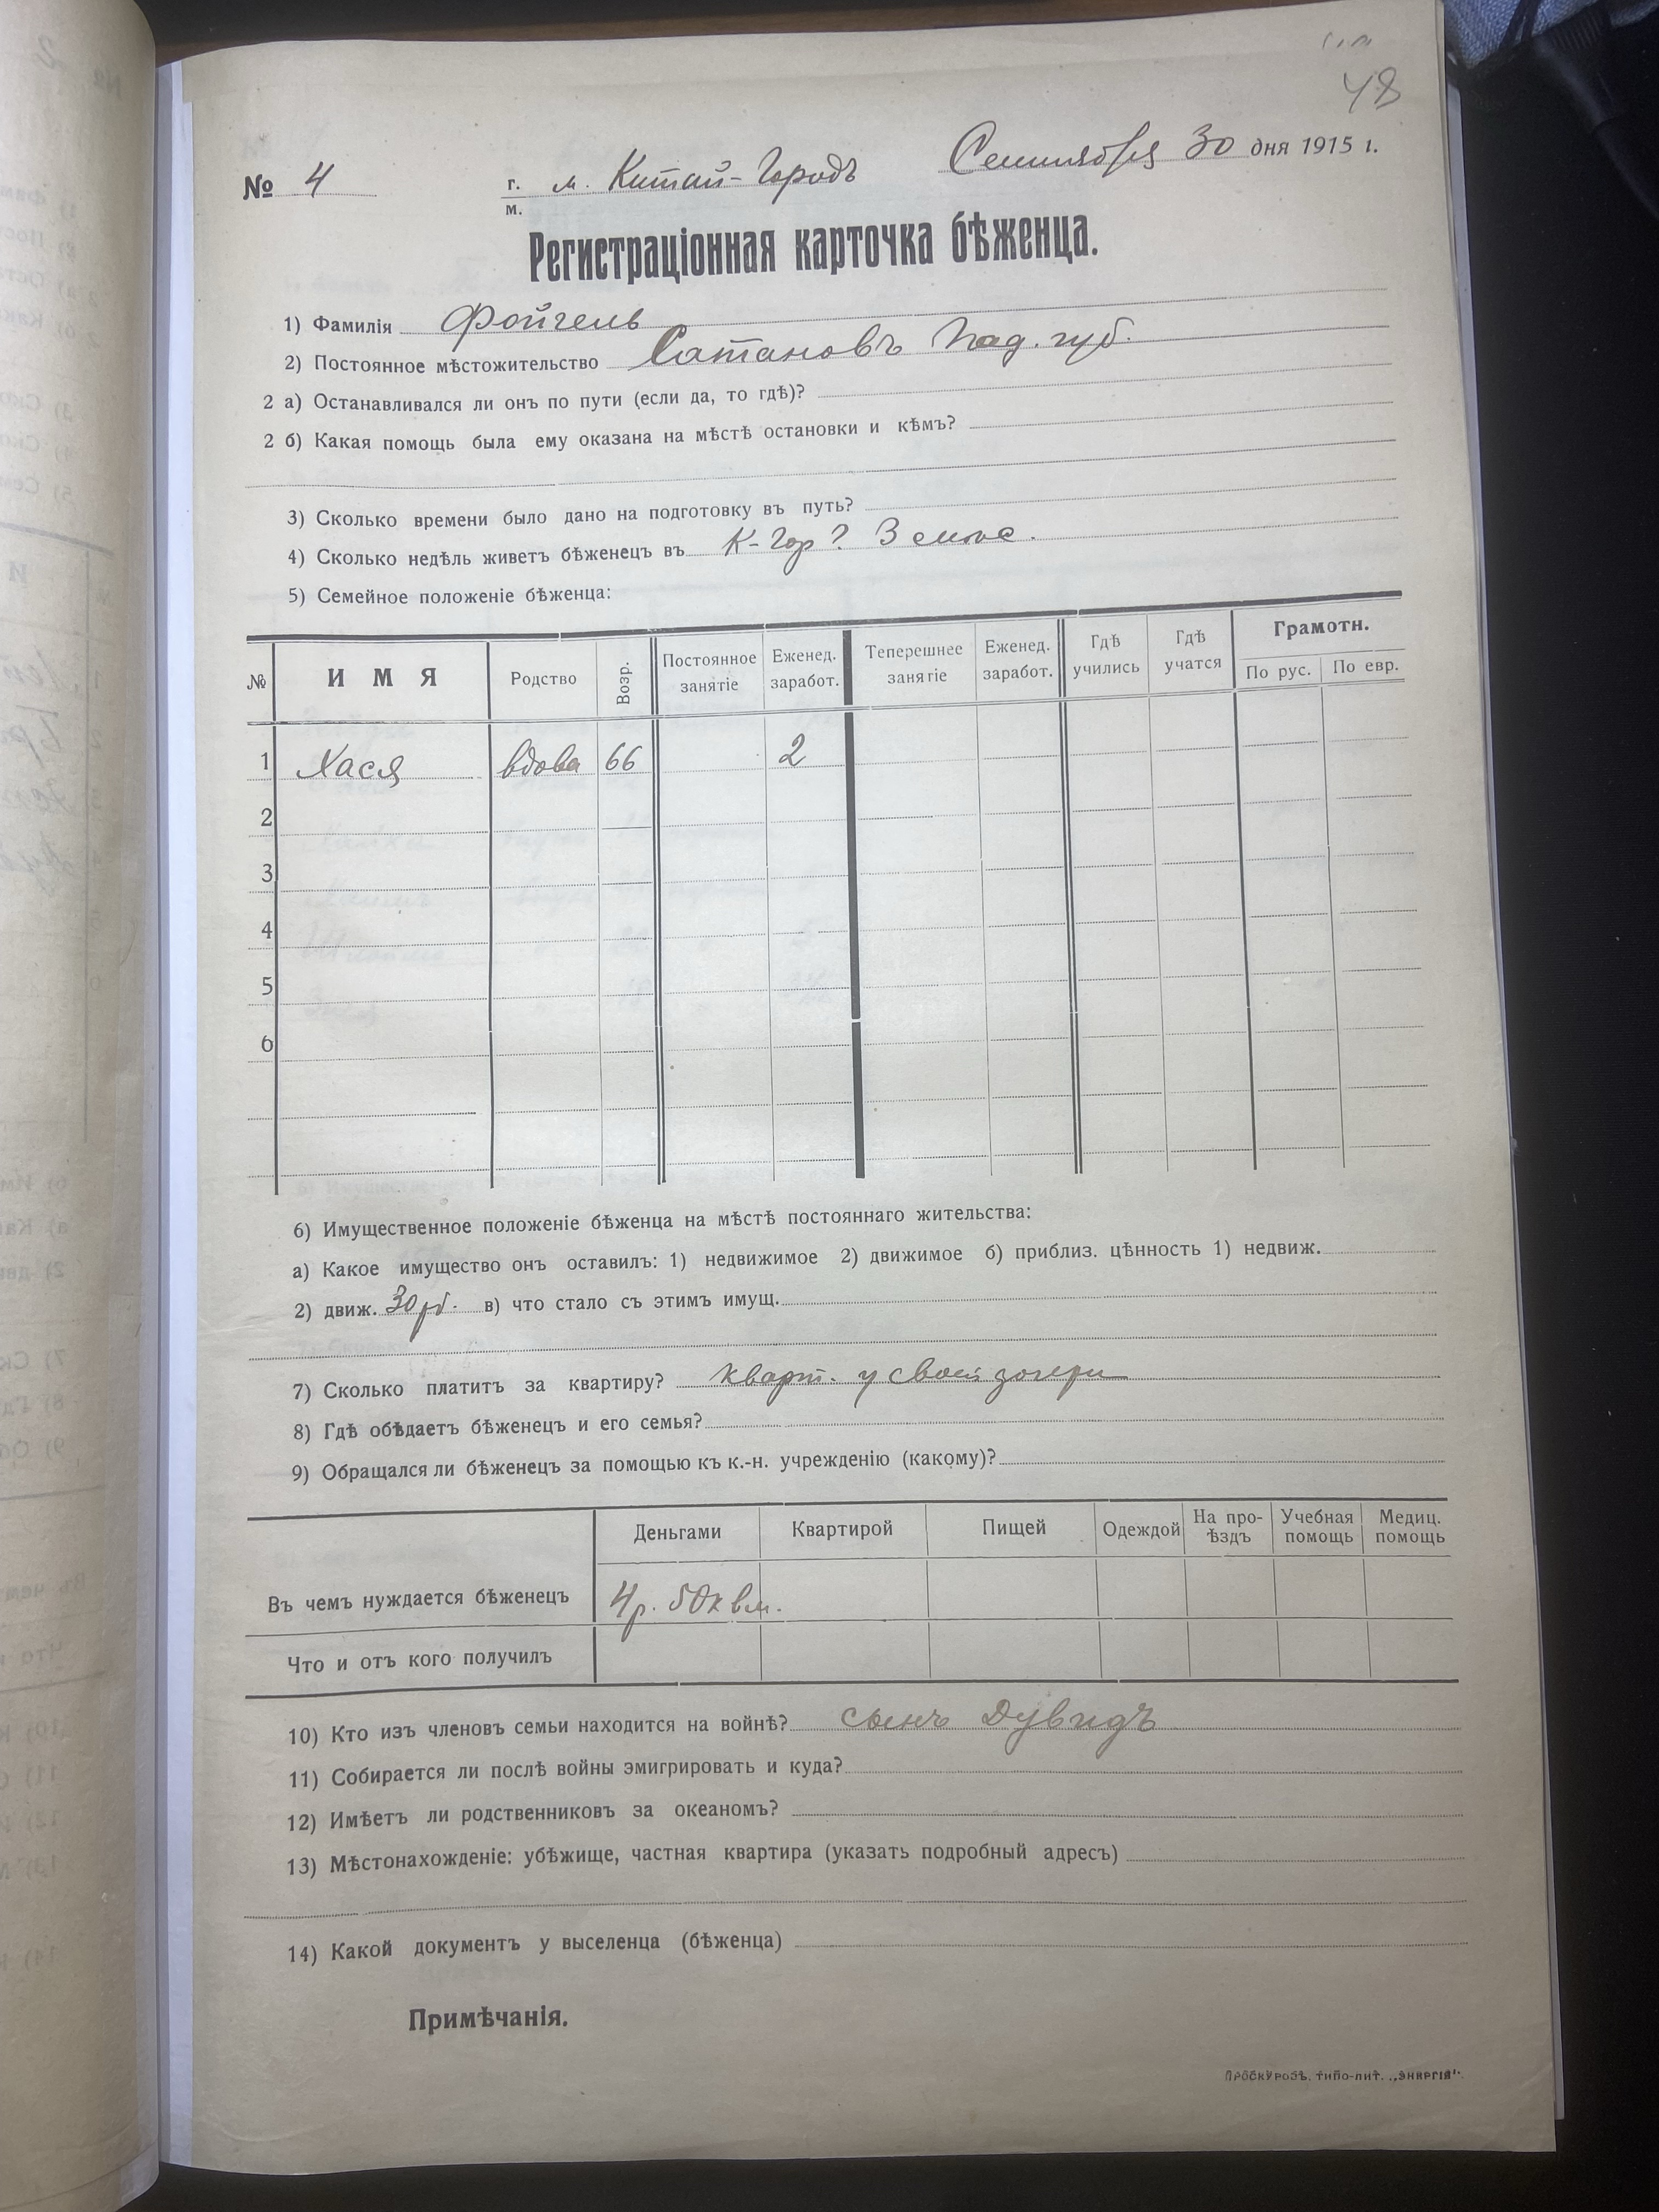 48
№ 4 г. м. Китай-Городъ Сентября 30 дня 1915 г.
м.
Регистраціонная карточка бѣженца.
1) Фамилія Фойгель
2) Постоянное мѣстожительство Сатановъ Под. губ.
2 а) Останавливался ли онъ по пути (если да, то гдѣ)?
2 б) Какая помощь была ему оказана на мѣстѣ остановки и кѣмъ?
3) Сколько времени было дано на подготовку въ путь?
4) Сколько недѣль живетъ бѣженецъ въ К-Гор? 3
5) Семейное положеніе бѣженца:
№ ИМЯ Родство Возр. Постоянное занятіе Еженед. заработ. Теперешнее занятіе Еженед. заработ. Гдѣ учились Гдѣ учатся Грамотн. По рус. По евр.
1 Хася вдова 66 2
2
3
4
5
6
6) Имущественное положеніе бѣженца на мѣстѣ постояннаго жительства:
а) Какое имущество онъ оставилъ: 1) недвижимое 2) движимое б) приблиз. цѣнность 1) недвиж.
2) движ. 30 рб. в) что стало съ этимъ имущ.
7) Сколько платитъ за квартиру? кварт. у своей дочери
8) Гдѣ обѣдаетъ бѣженецъ и его семья?
9) Обращался ли бѣженецъ за помощью къ к.-н. учрежденію (какому)?
Деньгами Квартирой Пищей Одеждой На про-ѣздъ Учебная помощь Медиц. помощь
Въ чемъ нуждается бѣженецъ 4р. 50к вм.
Что и отъ кого получилъ
10) Кто изъ членовъ семьи находится на войнѣ? сынъ Дувидъ
11) Собирается ли послѣ войны эмигрировать и куда?
12) Имѣетъ ли родственниковъ за океаномъ?
13) Мѣстонахожденіе: убѣжище, частная квартира (указать подробный адресъ)
14) Какой документъ у выселенца (бѣженца)
Примѣчанія.
ПРОСКУРОВЪ. ТИПО-ЛИТ. „ЭНЕРГІЯ".